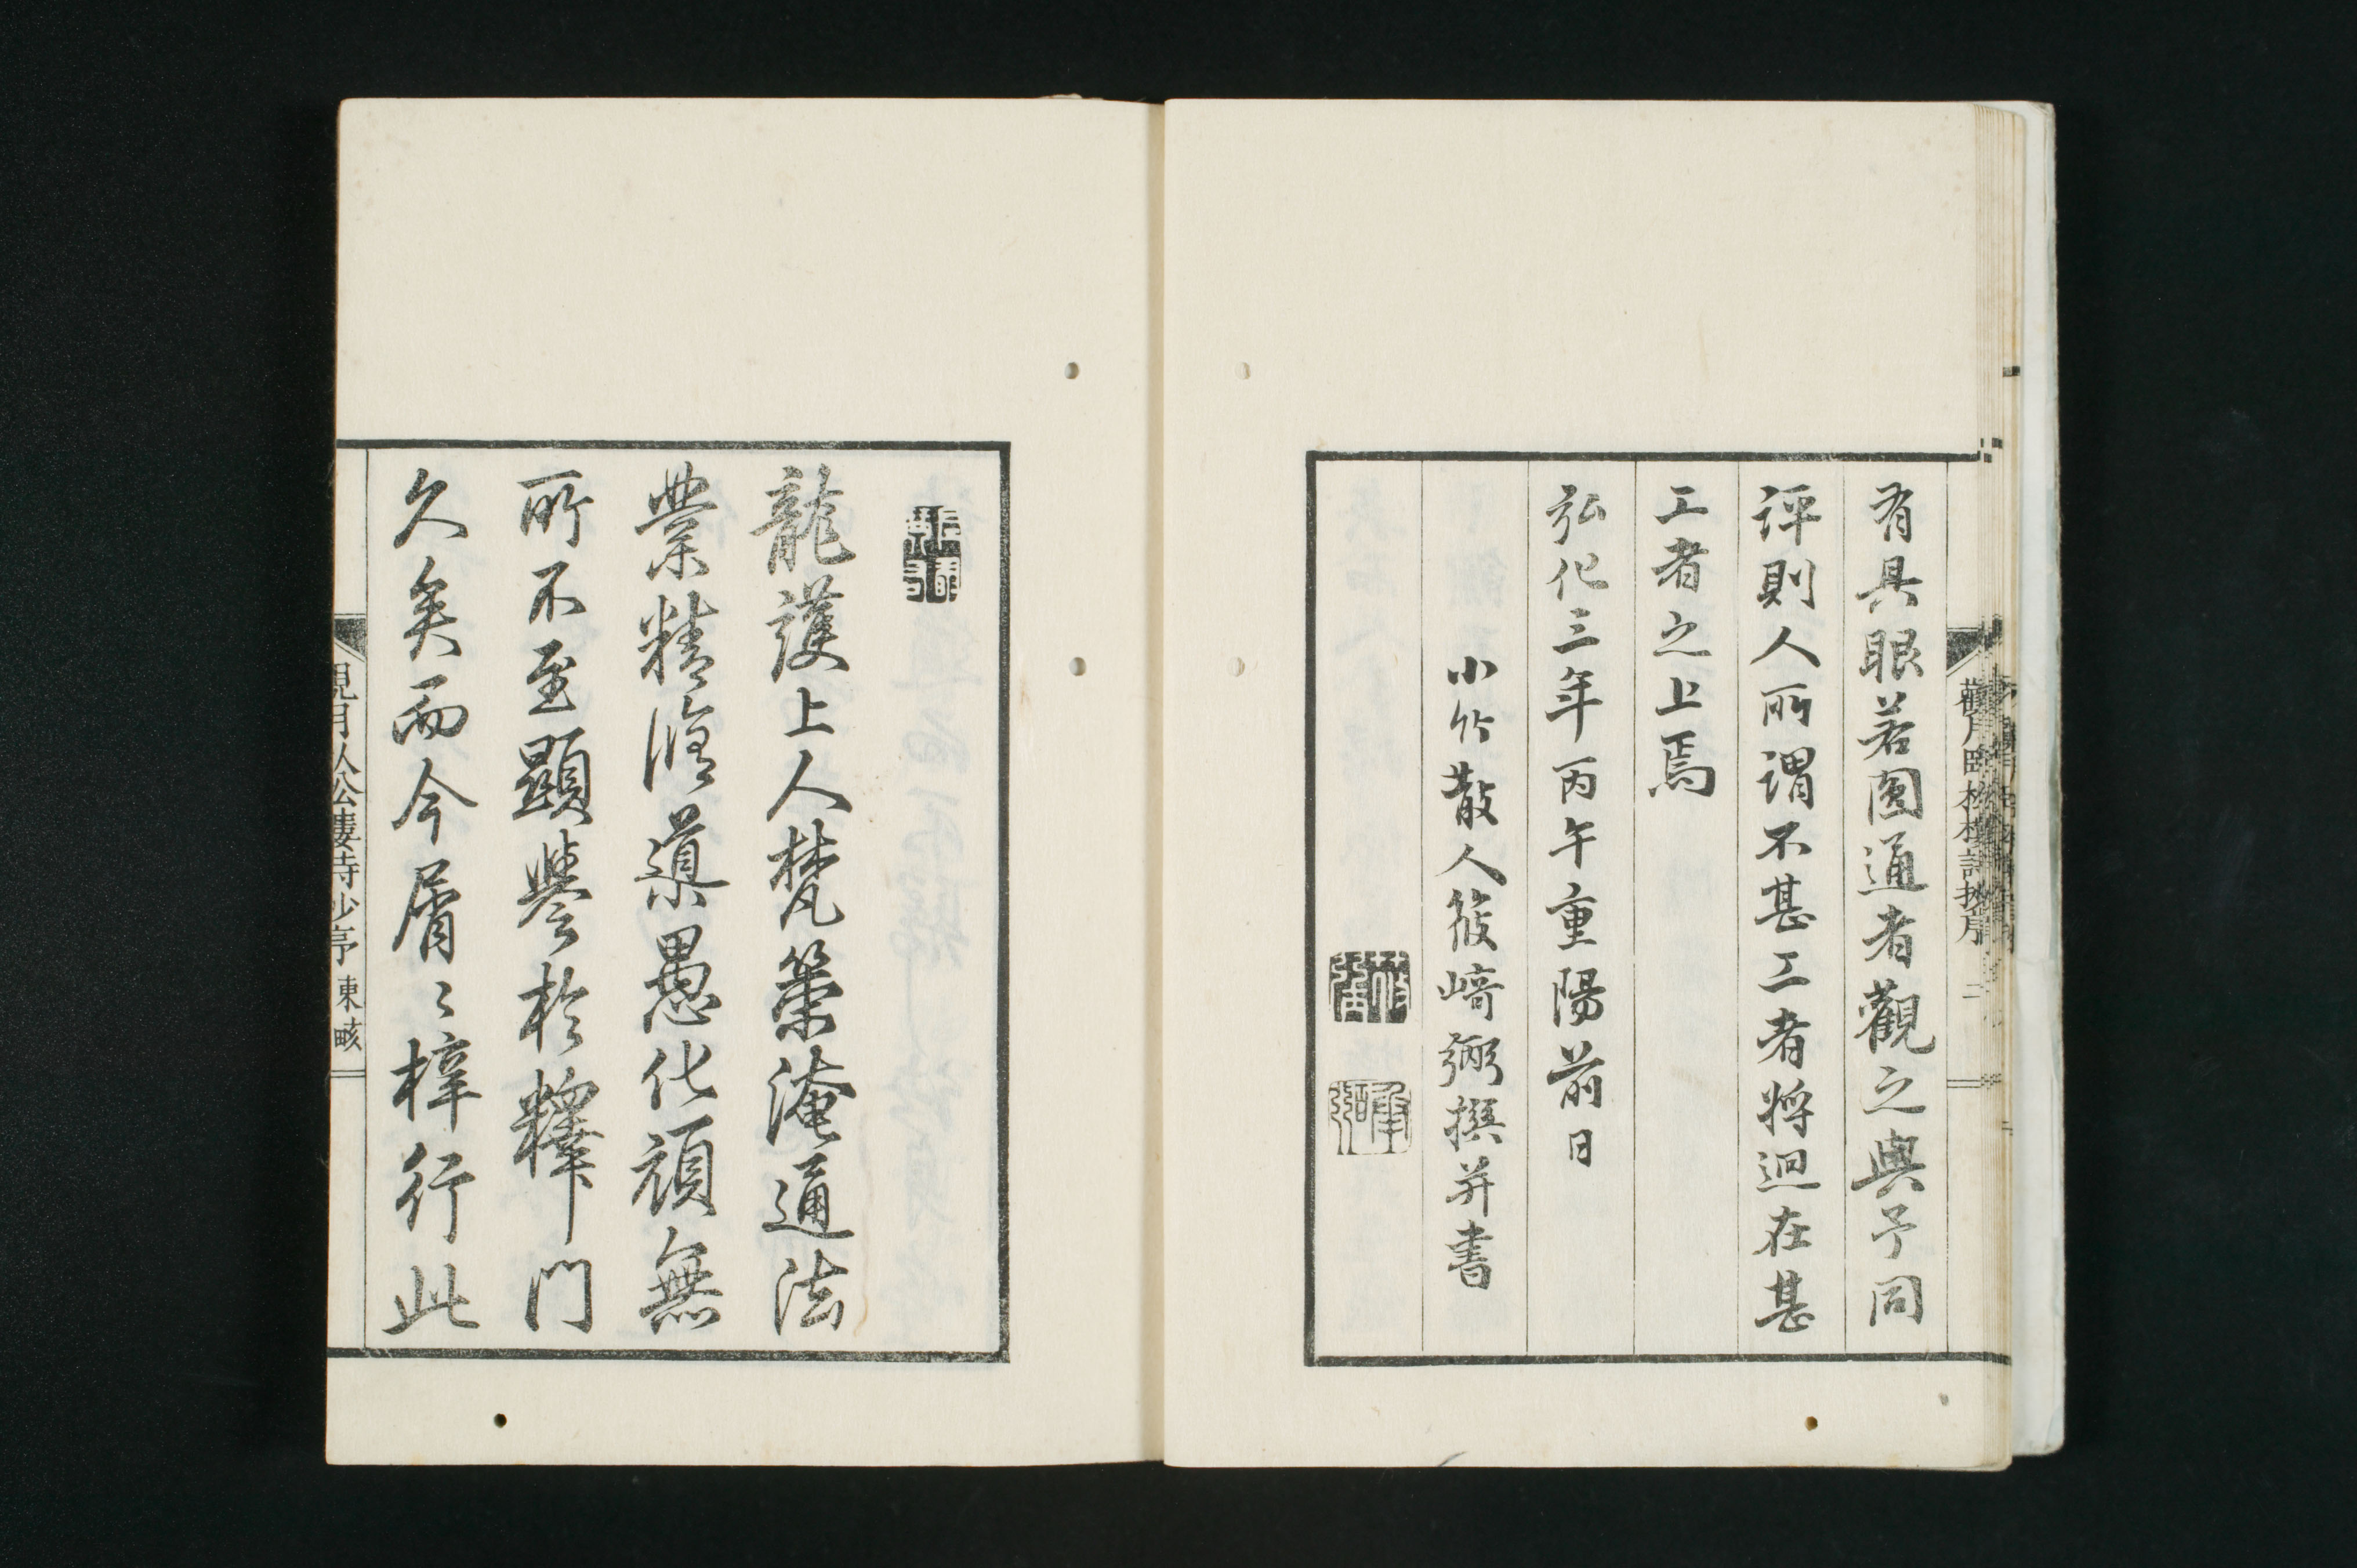 有具眼若圓通者觀之與予同
評則人所謂不甚工者將迥在甚
工者之上焉
弘化三年丙午重陽前日
小竹散人筱﨑弼撰并書
觀月臥松樓詩抄序 二
龍護上人梵策淹通法
業精修導愚化頑無
所不至顯譽於釋門
久矣而今屑〻梓行此
東畡